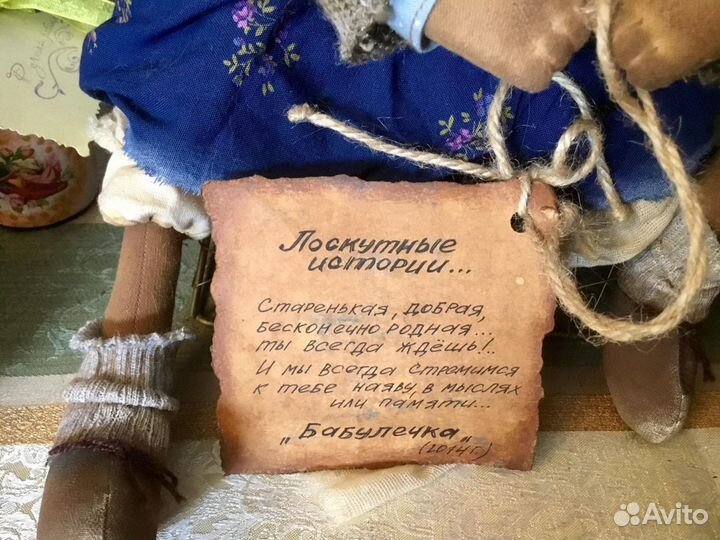 Лоскутные
истории...
Старенькая, добрая,
бесконечно родная...
ты всегда ждёшь!..
И мы всегда стремимся
к тебе наяву, в мыслях
или памяти...
„Бабулечка„
(2014г.)
Avito